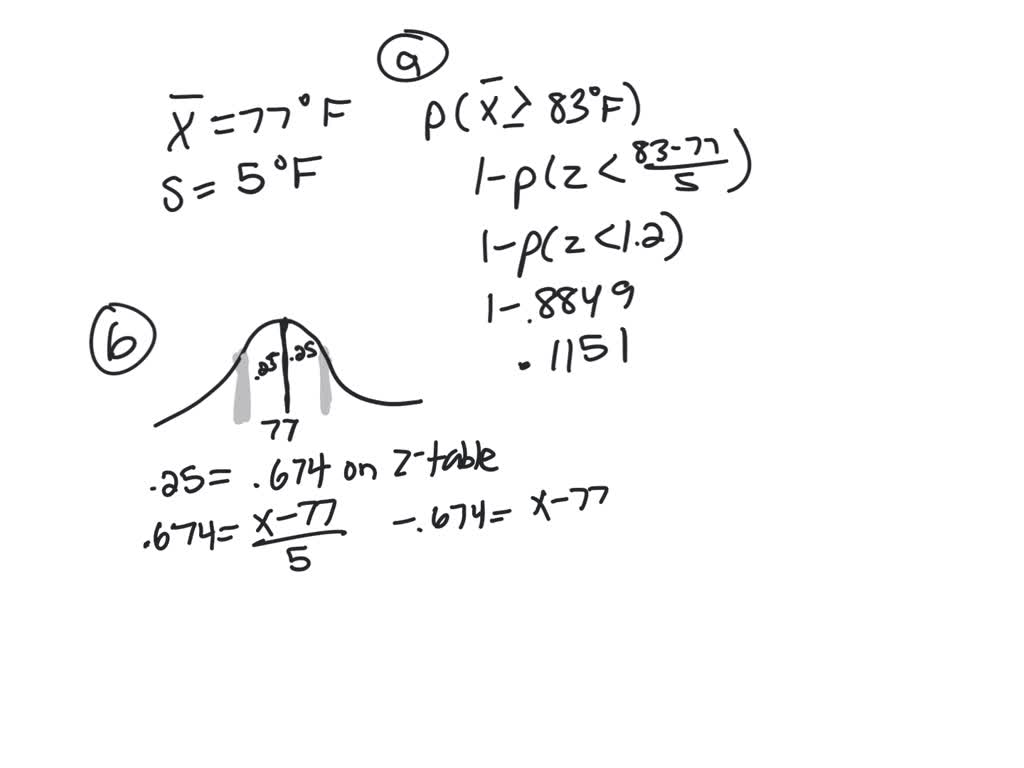 X̄ = 77°F
S = 5°F
a
p(x̄ ≥ 83°F)
1-p(z < 83-77/5)
1-p(z < 1.2)
1-.8849
.1151
b
.25 .25
77
.25 = .674 on z-table
.674 = x-77/5 -.674 = x-77